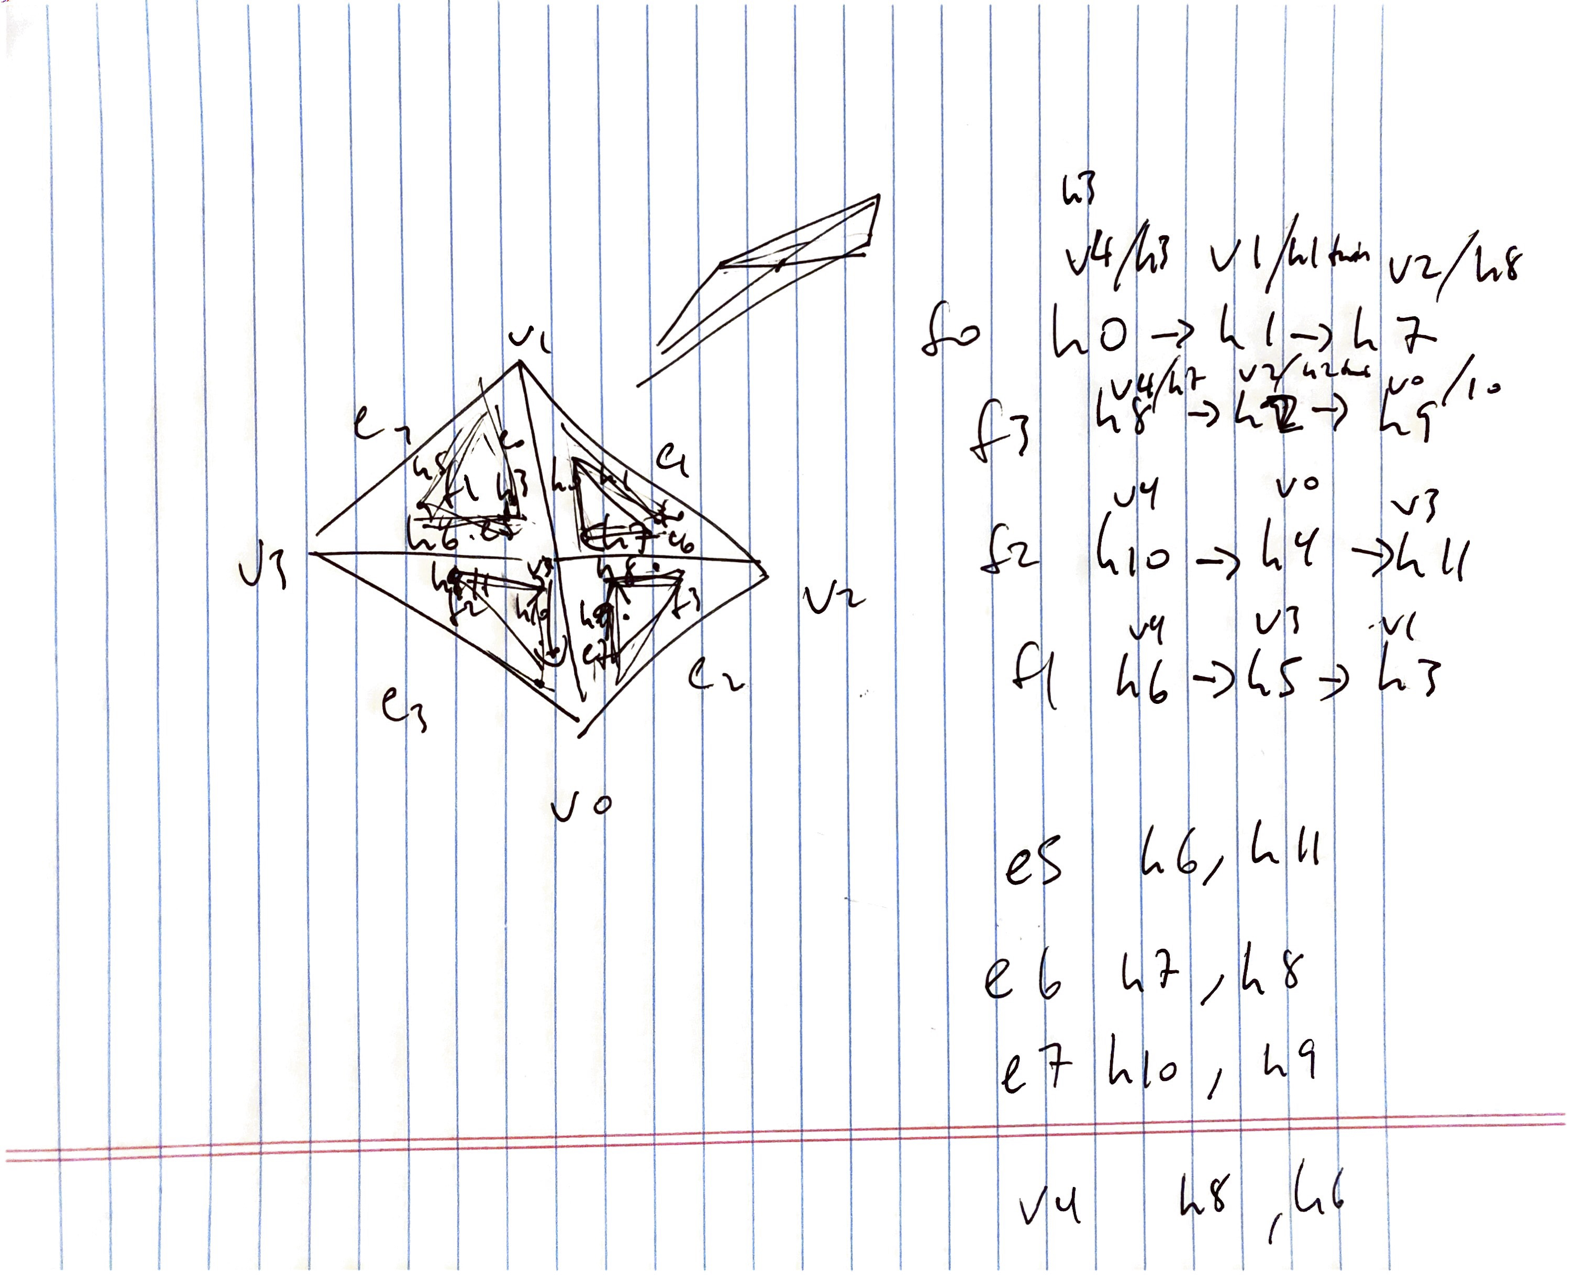 h3
v4/h3 v1/h1 twin v2/h8
f0 h0 → h1 → h7
v4/h7 v2/h2 v0/10
f3 h8 → h2 → h9
v4 v0 v3
f2 h10 → h4 → h11
v4 v3 v1
f1 h6 → h5 → h3
e5 h6, h11
e6 h7, h8
e7 h10, h9
v4 h8, h6
v1
e1
h5 f1 h3 h1
h6 h7 e6
v3
h8
f2 h10 h9 f3
v2
e2
e3
v0